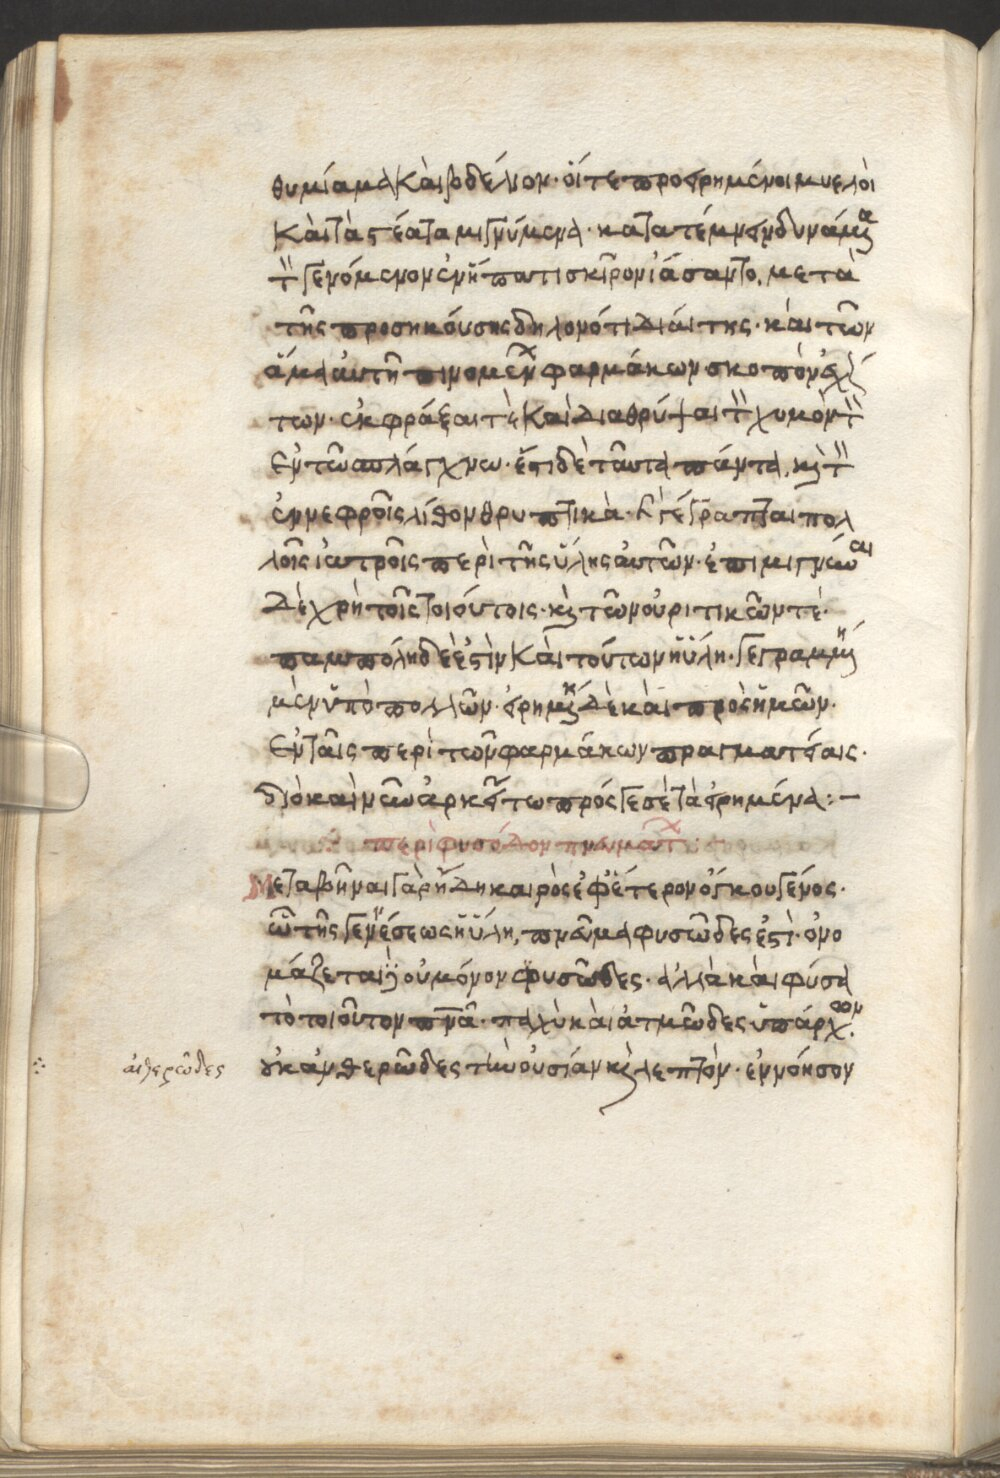 θυμίαμα καὶ βδέλιον· οἵ τε προειρημένοι μυελοὶ
καὶ τὰ στέατα μιγνύμενα· κατὰ τέμν δυνάμει
τ γενόμενον ἐν ἥπατι σκίρον ἰάσαντο. μετὰ
τῆς προσηκούσης δηλονότι διαίτης· καὶ τῶν
ἅμα αὐτῆ πινομένων φαρμάκων σκοπὸν
των· ἐκφράξαι τὲ καὶ διαθρύψαι τ χυμὸν τ
ἐν τῶ σπλάγχνω· ἔστι δὲ ταῦτα πάντα, κ τ
ἐν νεφροῖς λίθον θρυπτικὰ· γέγραπται πολ
λοῖς ἰατροῖς περὶ τῆς ὕλης αὐτῶν· ἐπιμιγνύναι
δὲ χρὴ τοῖς τοιούτοις· κ τῶν οὐριτικῶν τὲ·
παμπόλη δὲ ἐστὶν καὶ τούτων ἡ ὕλη· γεγραμμένη
μὲν ὑπὸ πολλῶν· εἰρημένη δὲ καὶ πρὸς ἡμῶν·
ἐν ταῖς περὶ τῶν φαρμάκων πραγματείαις·
διὸ καὶ νῦν ἀρκείτω πρός γε σὲ τὰ εἰρημένα:–
περὶ φυσόδον πνευμάτ:–
Μεταβῆναι γὰρ ἤδη καιρὸς ἐφ ἕτερον ὄγκου γένος·
ὧ τῆς γενέσεως ἡ ὕλη, πνεῦμα φυσῶδες ἐστὶ· ὀνο
μάζεται οὐ μόνον φυσῶδες· ἀλλὰ καὶ φύσα
τὸ τοιοῦτον πνα· παχὺ καὶ ἀτμῶδες ὑπάρχον.
οὐκ ἀνθερῶδες τὴν οὐσίαν κ λεπτόν· ἐν νόησον
αἰθερῶδες